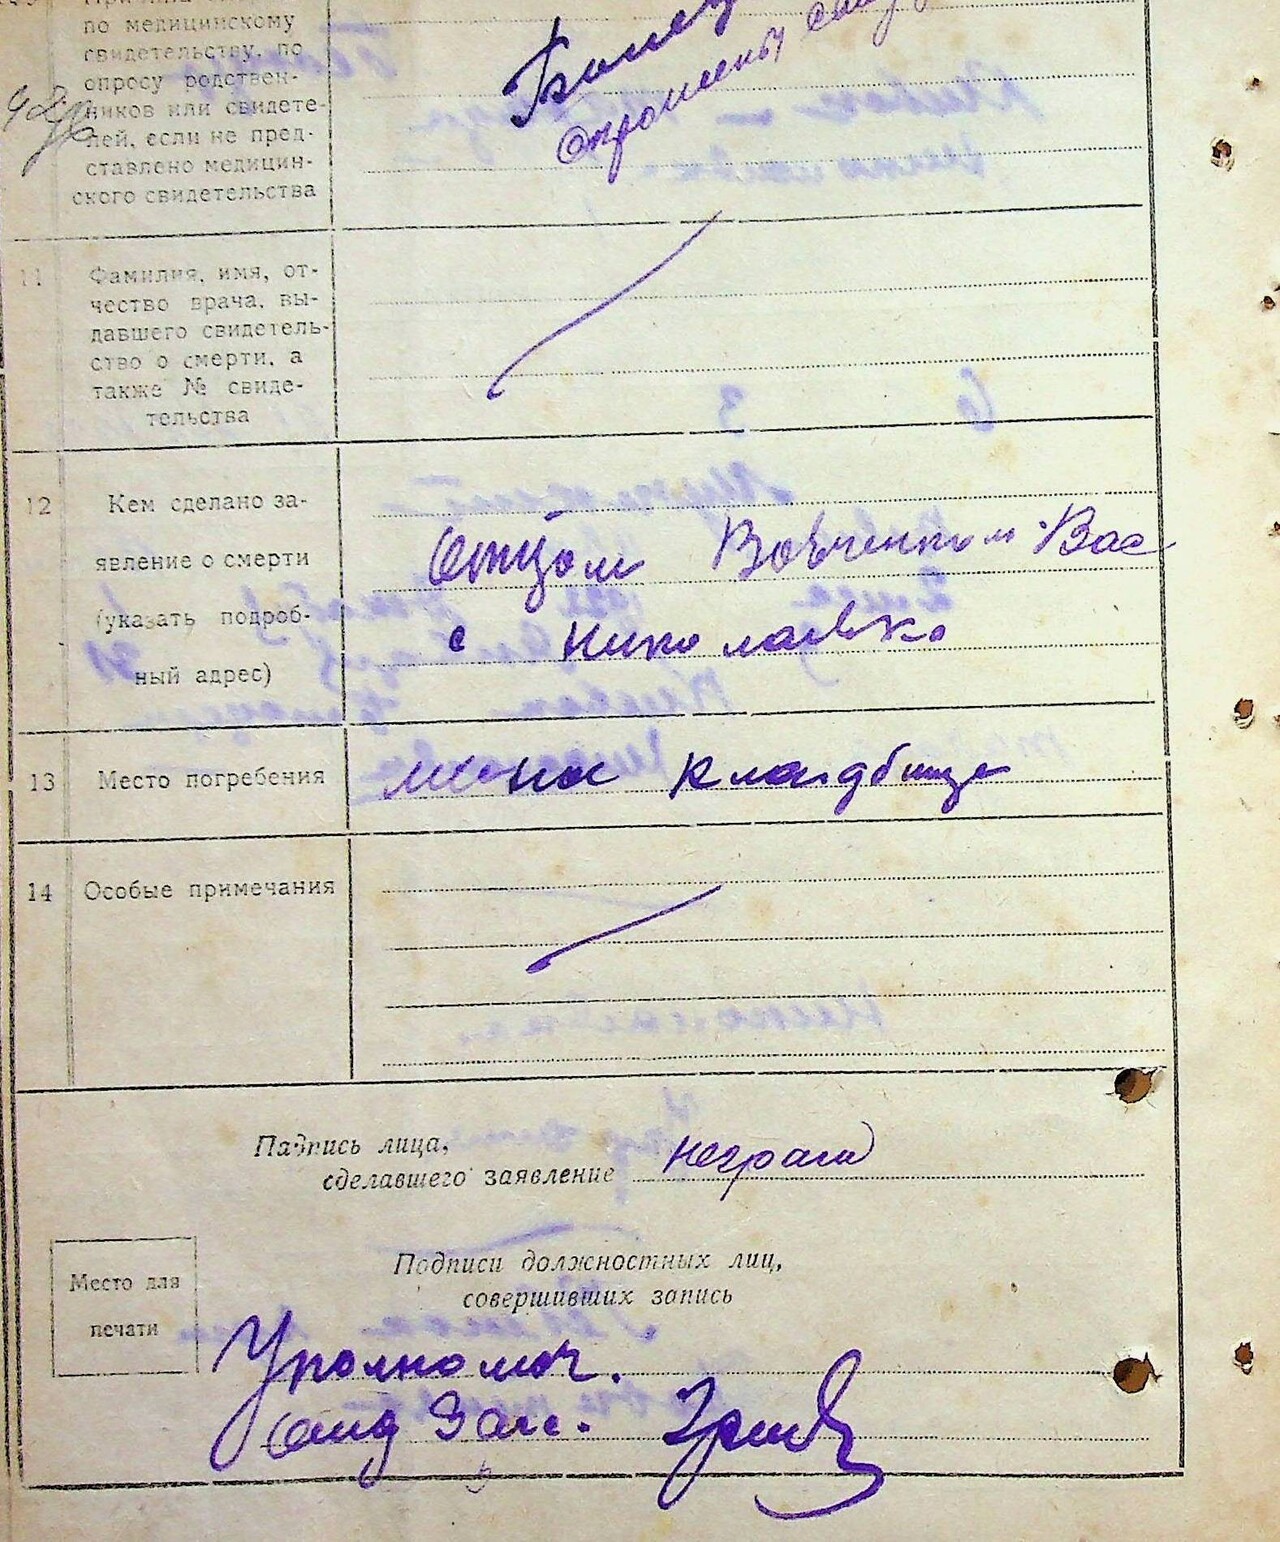 по медицинскому
свидетельству, по
опросу родствен-
ников или свидете-
лей, если не пред-
ставлено медицин-
ского свидетельства
опрошены
11 Фамилия, имя, от-
чество врача, вы-
давшего свидетель-
ство о смерти, а
также № свиде-
тельства
12 Кем сделано за-
явление о смерти
(указать подроб-
ный адрес)
Отцом Вовченком Вас
с Николаевка
13 Место погребения
кладбище
14 Особые примечания
Падпись лица,
сделавшего заявление неграм
Подписи должностных лиц,
совершивших запись
Место для
печати
Уполномоч.
Загс.